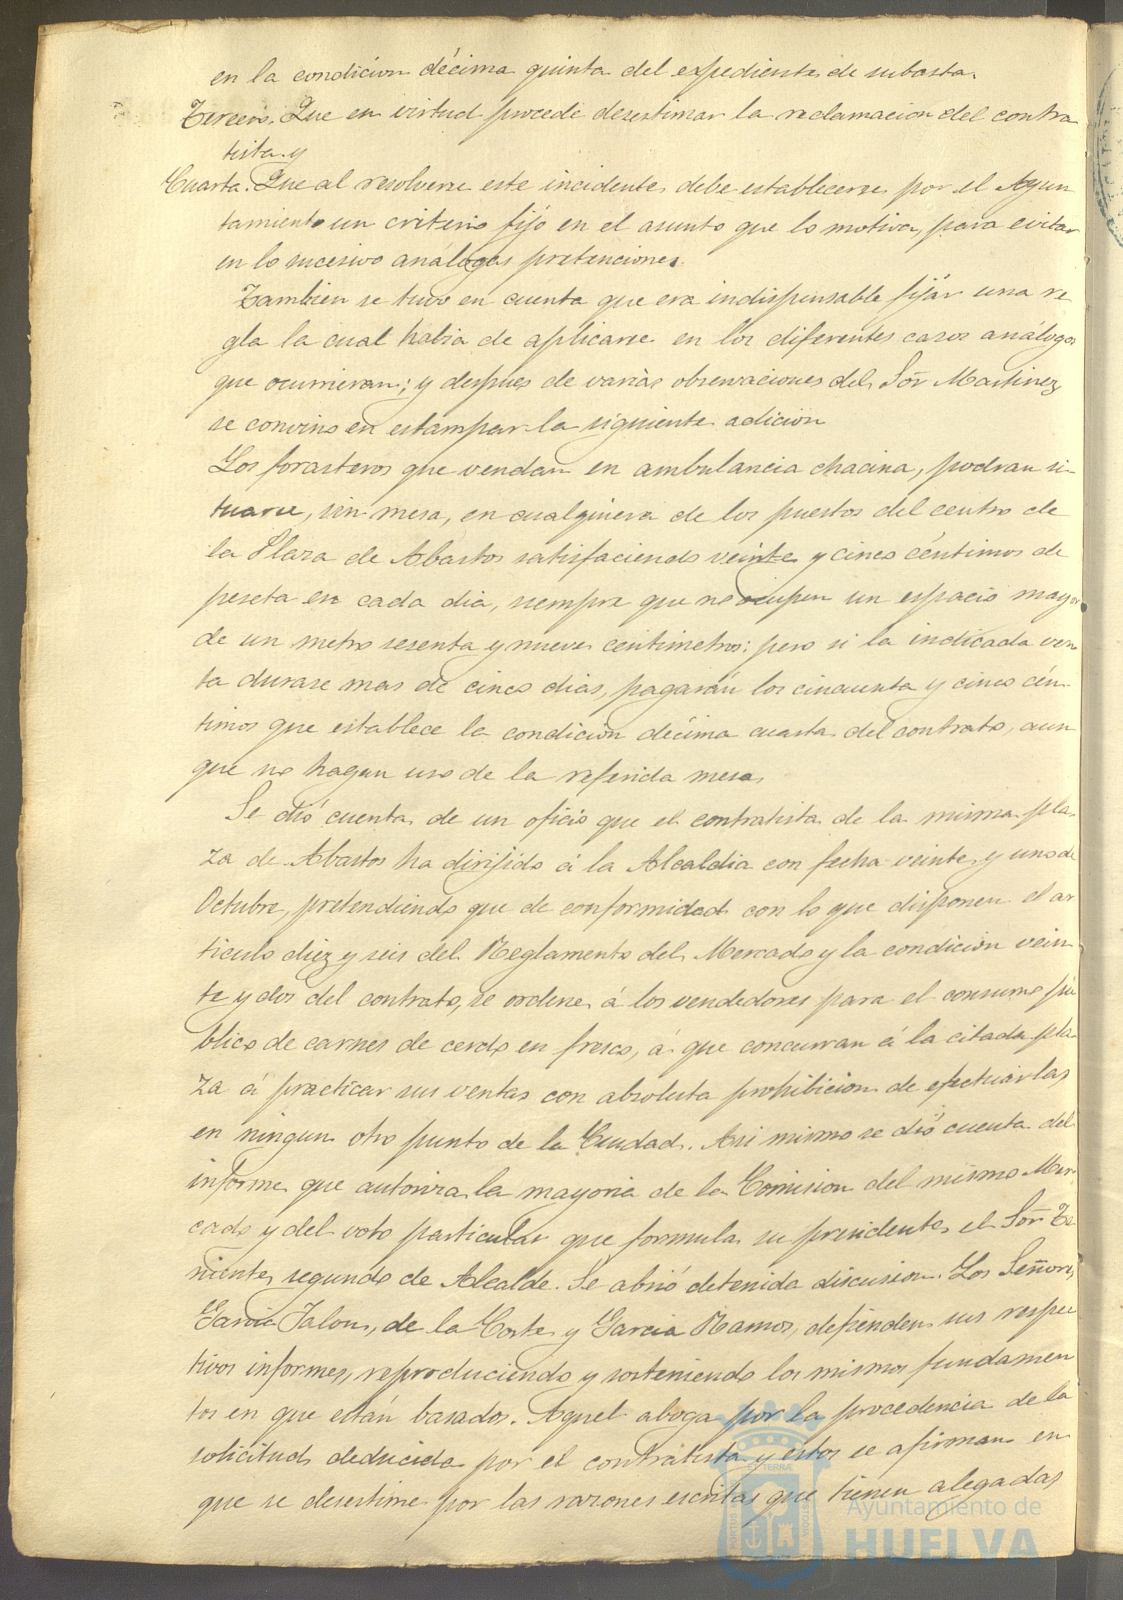 en la condición décima quinta del expediente de subasta.
Tercero. Que en virtud procede desestimar la reclamacion del contra
tista y
Cuarta. Que al resolverse este incidente debe establecerse por el Ayun
tamiento un criterio fijo en el asunto que lo motiva, para evitar
en lo sucesivo análogas pretenciones.
Tambien se tuvo en cuenta que era indispensable fijár una re
gla la cual habia de aplicarse en los diferentes casos análogos
que ocurrieran; y despues de varias observaciones del Sor Martinez
se convino en estampar la siguiente adición
Los forasteros que vendan en ambulancia chacina, podran si-
tuarse, sin mesa, en cualquiera de los puestos del centro de
la Plaza de Abastos satisfaciendo veinte y cinco céntimos de
peseta en cada dia, siempre que no ocupen un espacio mayor
de un metro sesenta y nueve centimetros; pero si la indicada ven
ta durase mas de cinco dias, pagarán los cincuenta y cinco cén-
timos que establece la condición décima cuarta del contrato, aun
que no hagan uso de la referida mesa.
Se dió cuenta de un oficio que el contratista de la misma pla
za de Abastos ha dirijido á la Alcaldia con fecha veinte y uno de
Octubre, pretendiendo que de conformidad con lo que disponen el ar
ticulo diez y seis del Reglamento del Mercado y la condición vein
te y dos del contrato, se ordene á los vendedores para el consumo pú
blico de carnes de cerdo en fresco, á que concurran á la citada pla
za á practicar sus ventas con absoluta prohibicion de efectuarlas
en ningun otro punto de la Ciudad. Asi mismo se dió cuenta del
informe que autoriza la mayoria de la Comision del mismo Mer
cado y del voto particular que formula su presidente el Sor Te
niente segundo de Alcalde. Se abrió detenida discusion. Los Señores
Garcia Jalon, de la Corte y Garcia Ramos, defienden sus respec
tivos informes, reproduciendo y sosteniendo los mismos fundamen
tos en que están basados. Aquel aboga por la procedencia de la
solicitud deducida por el contratista y estos se afirman en
que se desestime por las razones escritas que tienen alegadas
Ayuntamiento de
HUELVA